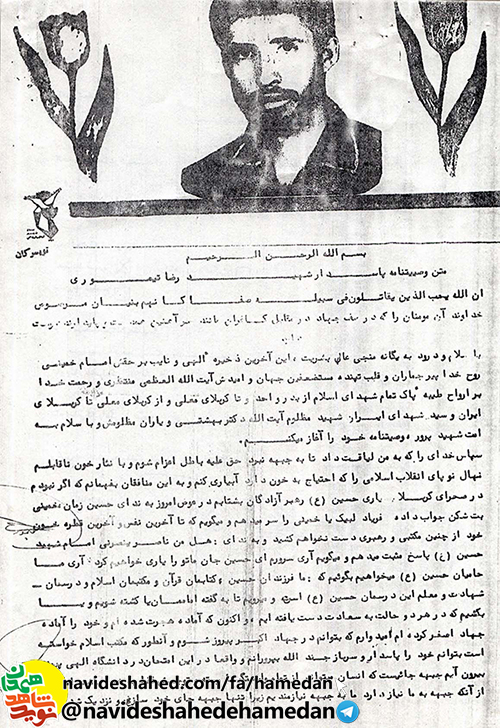 تویسرکان
بسم الله الرحمن الرحیم
متن وصیتنامه پاسدار شهید رضا تیموری
ان الله یحب الذین یقاتلون فی سبیله صفا کانهم بنیان مرصوص
خداوند آن مومنان را که در صف جهاد در مقابل کافران مانند سد آهنین
با سلام و درود به یگانه منجی عالم بشریت، این آخرین ذخیره الهی و نایب بر حقش امام خمینی
روح خدا پیر جماران و قلب تپنده مستضعفین جهان و امیدش آیت الله العظمی منتظری و رحمت خدا
بر ارواح طیبه پاک تمام شهدای اسلام از بدر و احد و تا کربلای معلی و از کربلای معلی تا کربلای
ایران و سید شهدای ایران شهید مظلوم آیت الله دکتر بهشتی و یاران مظلومش و با سلام به
امت شهید پرور وصیتنامه خود را آغاز میکنم.
سپاس خدای را که به من لیاقت داد تا به جبهه نبرد حق علیه باطل اعزام شوم و با نثار خون ناقابلم
نهال نوپای انقلاب اسلامی را که احتیاج به خون دارد آبیاری کنم و به این منافقان بفهمانم که اگر نبودم
در صحرای کربلا یاری حسین (ع) رهبر آزادگان بشتابم در عوض امروز به ندای حسین زمان خمینی
بت شکن جواب داده فریاد لبیک یا خمینی را سر میدهم و میگویم که تا آخرین نفس و آخرین قطره خون
خود از چنین مکتبی و رهبری دست نخواهم کشید و به ندای هل من ناصر ینصرنی امام شهید
حسین (ع) پاسخ مثبت میدهم و میگویم آری سرورم ای حسین جان ما تو را یاری خواهیم کرد آری ما
حامیان حسین (ع) میخواهیم بگوئیم که ما فرزندان حسین کتابمان قرآن و مکتبمان اسلام و درسمان
شهادت و معلم این درسمان حسین (ع) است و میرویم تا به گفته اماممان یا کشته شویم و یا
بکشیم که در هر دو حالت به سعادت دست یافته ایم و اکنون که آماده هجرت شده ام و خود را آماده
جهاد اصغر کرده ام امیدوارم که بتوانم در جهاد اکبر پیروز شوم و آنطور که مکتب اسلام خواسته
است بتوانم خود را پاسدار و سرباز جند الله بپرورانم و واقعا در این امتحان در دانشگاه الهی
بیرون آیم جبهه جائیست که انسان میتواند
از آنکه جبهه به ما نیاز دارد ما به جبهه نیازمندیم زیرا تنها جبهه جای خود سازی و نزدیک
نوید شاهد همدان
navideshahed.com/fa/hamedan
@navideshahedehamedan